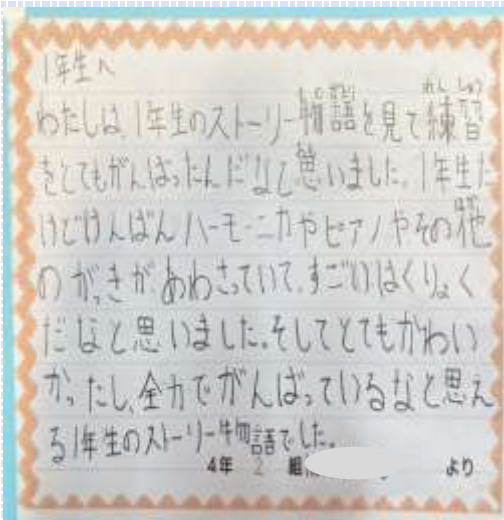 1年生へ
わたしは、1年生のストーリー物語を見て練習
をとてもがんばったんだなと思いました。1年生だ
けどけんばんハーモニカやピアノやその他
のがっきがあわさっていて、すごいはくりょく
だなと思いました。そしてとてもかわい
かったし、全力でがんばっているなと思え
る1年生のストーリー物語でした。
4年 2 組 より